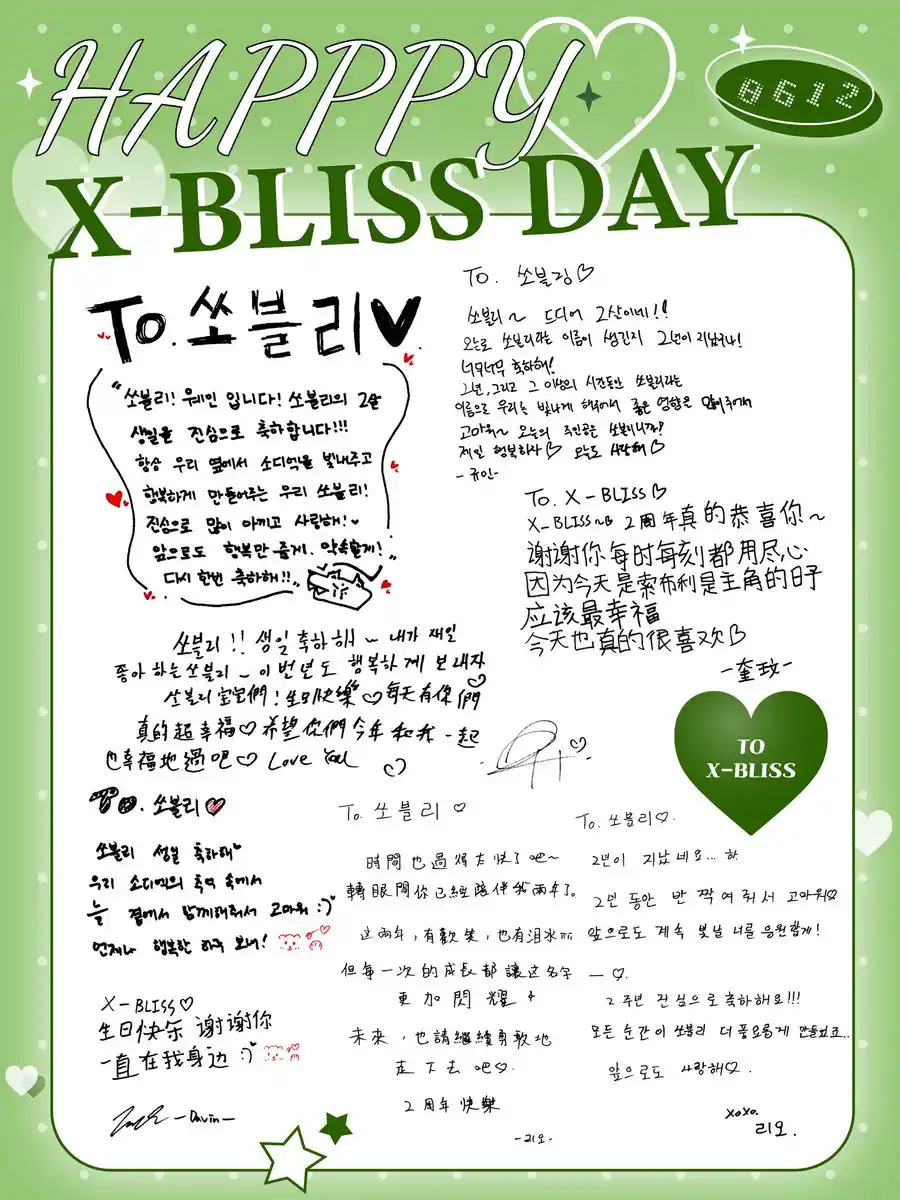 HAPPPY
X-BLISS DAY
0612
To. 쏘블리♥
"쏘블리! 웨인 입니다! 쏘블리의 2살
생일을 진심으로 축하합니다!!!
항상 우리 옆에서 소디엑을 빛내주고
행복하게 만들어주는 우리 쏘블리!
진심으로 많이 아끼고 사랑해!♥
앞으로도 행복만 줄게. 약속할게!
다시 한번 축하해!!"
To. 쏘블링♡
쏘블리~ 드디어 2살이네!!
오늘로 쏘블리라는 이름이 생긴지 2년이 지났구나!
너무너무 축하해!
2년, 그리고 그 이상의 시간동안 쏘블리라는
이름으로 우리를 빛나게 해주어서 좋은 영향을 많이주어서
고마워~ 오늘의 주인공은 쏘블리니까!
제일 행복하자♡ 오늘도 사랑해♡
-규민-
To. X-BLISS♡
X-BLISS~♡ 2周年真的恭喜你~
谢谢你每时每刻都用尽心
因为今天是索布利是主角的日子
应该最幸福
今天也真的很喜欢♡
-奎玟-
쏘블리!! 생일 축하해~ 내가 제일
좋아하는 쏘블리~ 이번년도 행복하게 보내자
쏘블리 宝宝們! 生日快樂♡每天有你們
真的超幸福♡希望你們今年和我一起
也幸福地過吧♡ Love You
TO
X-BLISS
To. 쏘블리♡
쏘블리 생일 축하해♥
우리 소디엑의 추억 속에서
늘 곁에서 함께해줘서 고마워 :)
언제나 행복한 하루 보내!
X-BLISS♡
生日快乐 谢谢你
一直在我身边 :)
-Davin-
To. 쏘블리♡
時間也過得太快了吧~
轉眼間你已經陪伴我兩年了。
这兩年,有歡笑,也有泪水
但每一次的成長都讓这名字
更加閃耀
未來,也請繼續勇敢地
走下去吧♡.
2周年快樂
-리오-
To. 쏘블리♡.
2년이 지났네요... 하
2년 동안 반짝여줘서 고마워♡
앞으로도 계속 빛날 너를 응원할게!
—♡.
2주년 진심으로 축하해요!!!
모든 순간이 쏘블리 더 풍요롭게
앞으로도 사랑해♡.
xoxo.
리오.